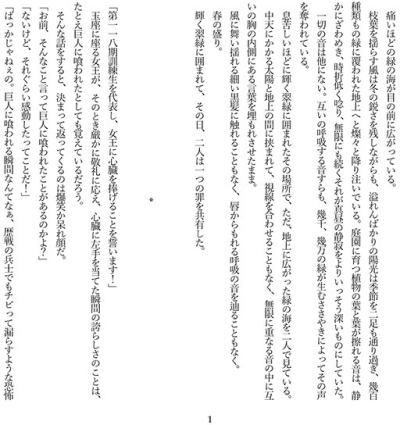 痛いほどの緑の海が目の前に広がっている。
枝葉を揺らす風は冬の鋭さを残しながらも、溢れんばかりの陽光は季節を二足も通り過ぎ、幾百
種類もの緑に覆われた地上へと燦々と降り注いでいる。庭園に育つ植物の葉と葉が擦れる音は、静
かにざわめき、時折低く唸り、無限にも続くそれが真昼の静寂をよりいっそう深いものにしていた。
一切の音は他にない。互いの呼吸する音すらも、幾千、幾万の緑が生むささやきによってその声
を奪われている。
息苦しいほどに輝く翠緑に囲まれたその場所で、ただ、地上に広がった緑の海を二人で見ている。
中天にかかる太陽と地上の間に挟まれて、視線を合わせることもなく、無限に重なる音の中に互
いの胸の内側にある言葉を埋もれさせたまま。
風に舞い揺れる細い黒髪に触れることもなく、唇からもれる呼吸の音を辿ることもなく。
春の盛り。
輝く翠緑に囲まれて、その日、二人は一つの罪を共有した。
*
『第一一八期訓練生を代表し、女王に心臓を捧げることを誓います!』
玉座に座る女王が、そのとき厳かに敬礼に応え、心臓に左手を当てた瞬間の誇らしさのことは、
たとえ巨人に喰われたとしても覚えているだろう。
そんな話をすると、決まって返ってくるのは爆笑か呆れ顔だ。
「お前、そんなこと言って巨人に喰われたことがあるのかよ?」
「ないけど、それぐらい感動したってことだ!」
「ばっかじゃねぇの。巨人に喰われる瞬間なんてなぁ、歴戦の兵士でもチビって漏らすような恐怖
1